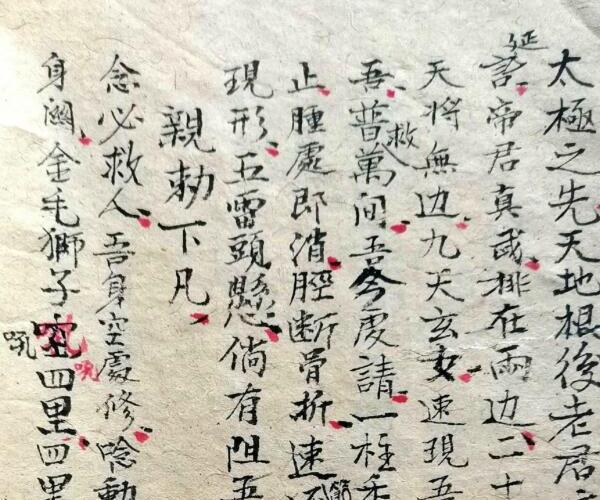 太極之先天地根後老君
諮延帝君真武排在兩边二十
天将無边九天玄女速現吾
吾普救萬间吾今虔請一柱香
止腫處即消脛断骨折速
現形五雷頭懸倘有阻吾
親勅下凡
念必救人吾身空處修唸動
身闽金毛獅子吼四里四里